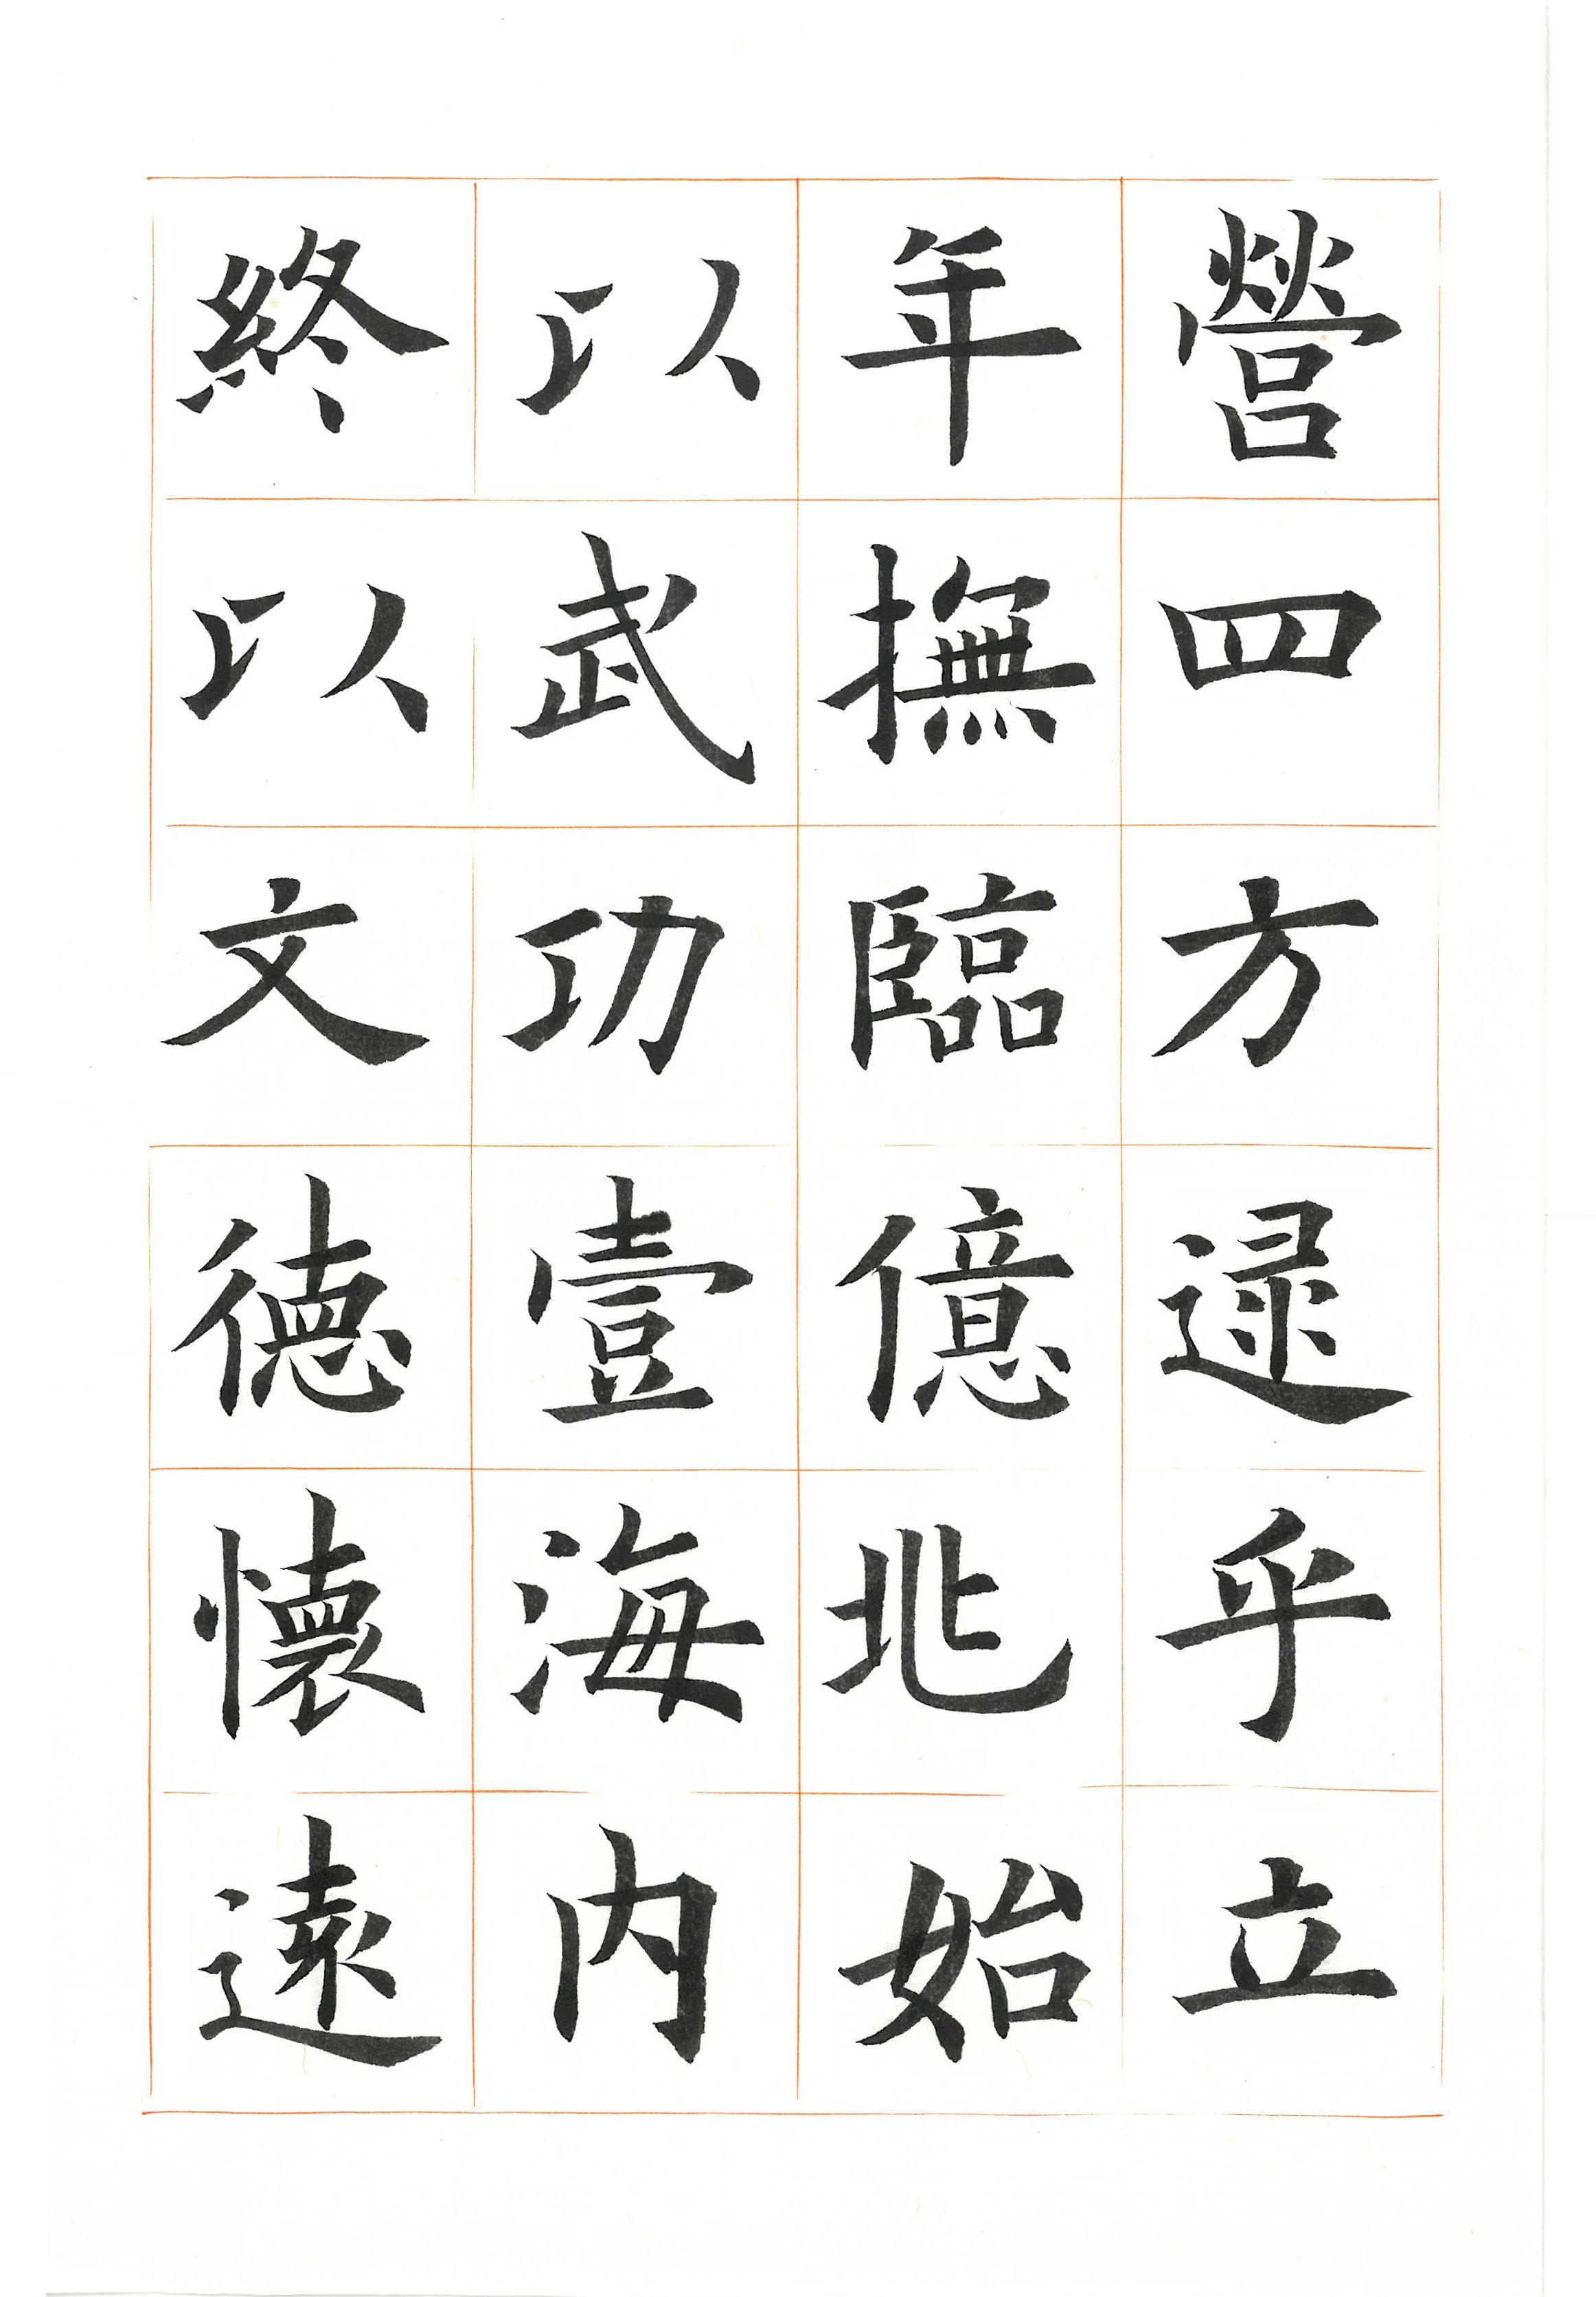 營四方逯乎立
年撫臨億兆始
以武功壹海内
終以文德懷遠